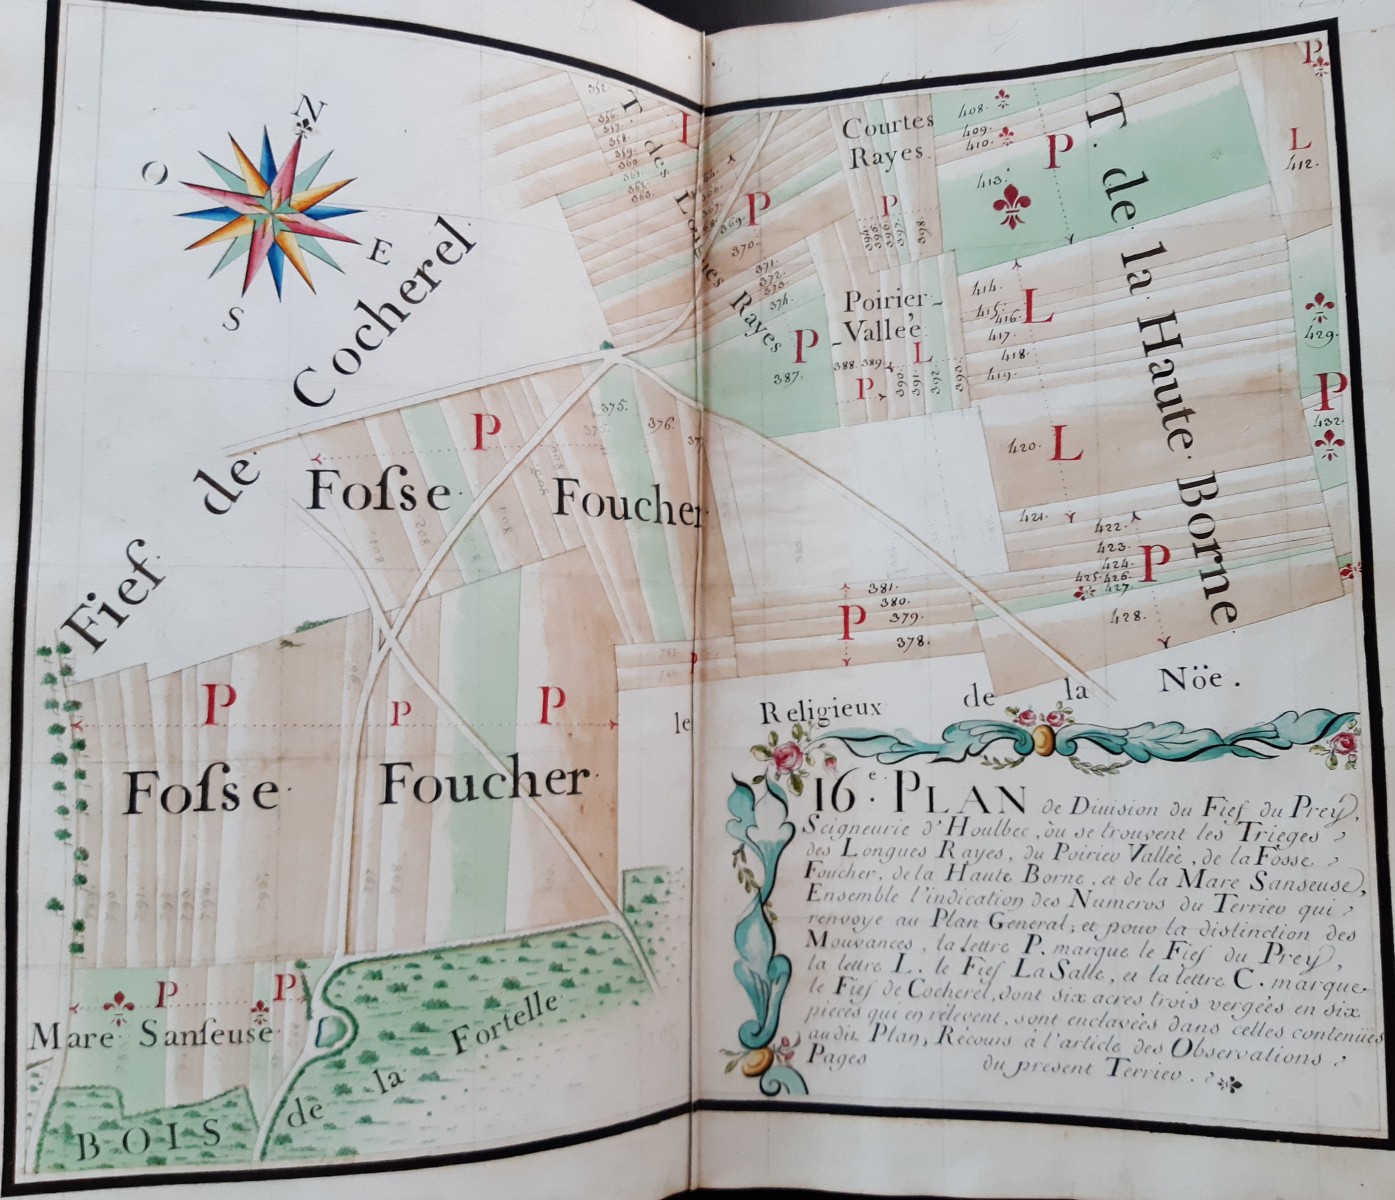 N
O
E
S
Fief de Cocherel
T. des Longues Rayes
352.
356.
357.
358.
359.
360.
361.
362.
363.
L
P
369.
370.
371.
372.
373.
374.
P
387.
Courtes
Rayes.
P
395. 396. 397. 398.
Poirier-
-Valleé
L
388. 389.
P
390. 391. 392. 393.
T. de la Haute Borne
408.
409.
410.
P
413.
P
L
412.
414.
415.
416.
417.
418.
419.
L
420.
L
421.
422.
423.
424.
425. 426.
427.
428.
P
429.
P
432.
375.
376.
P
Foſse Foucher
381.
380.
379.
378.
P
P
P P P
Foſse Foucher
le
Religieux de la Nöe.
P P
Mare Sanſeuse
BOIS de la Fortelle
16e. PLAN de Division du Fief du Prey,
Seigneurie d'Houlbec, ou se trouvent les Trieges
des Longues Rayes, du Poirier Vallée, de la Fosse
Foucher, de la Haute Borne, et de la Mare Sanseuse,
Ensemble l'indication des Numeros du Terrier qui
renvoye au Plan General; et pour la distinction des
Mouvances, la lettre P. marque le Fief du Prey,
la lettre L. le Fief La Salle, et la lettre C. marque
le Fief de Cocherel, dont six acres trois vergées en six
pieces qui en relevent, sont enclavées dans celles contenües
au dit Plan, Recours à l'article des Observations
Pages du present Terrier.